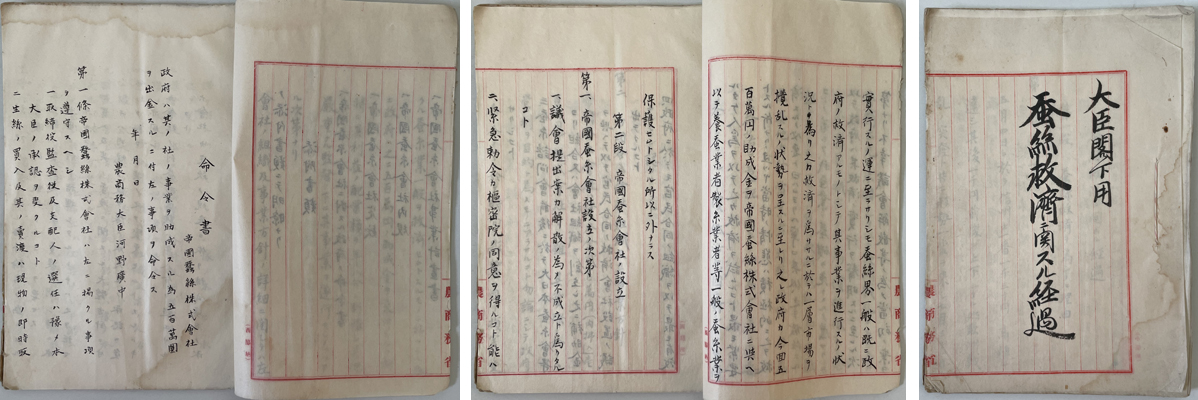 大臣閣下用
蚕絲救濟ニ関スル経過
農商務省
実行スルノ運ニ至ラサリシモ蚕絲界一般ハ既ニ政
府ノ救済アルモノトシテ其事業ヲ進行スルノ状
況ト為リ之カ救済ヲ為サヽルニ於テハ一層市場ヲ
攪乱スルノ状勢ヲ呈スルニ至レリ之レ政府カ今回五
百萬円ノ助成金ヲ帝國蚕絲株式會社ニ與ヘ
以テ養蚕業者製糸業者等一般ノ蚕糸業ヲ
保護セントシタル所以ニ外ナラス
第二段 帝國蚕糸會社ノ設立
第一、帝國蚕糸會社設立ノ次第
一、議會提出案カ解散ノ為メ不成立トナリタル
コト
二、緊急勅令カ樞密院ノ同意ヲ得ルコト能ハ
農商務省
農商務省
命令書
帝國蠶絲株式會社
政府ハ其ノ社ノ事業ヲ助成スル為五百萬圓
ヲ出金スルニ付左ノ事項ヲ命令ス
年 月 日
農商務大臣河野廣中
第一條帝國蠶絲株式會社ハ左ニ掲クル事項
ヲ遵守スヘシ
一取締役監査役及支配人ノ選任ハ豫メ本
大臣ノ承認ヲ受クルコト
二生絲ノ買入及其ノ賣渡ハ現物ノ即時取